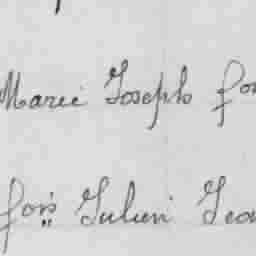 Marie Joseph fo
fois Julien Jea